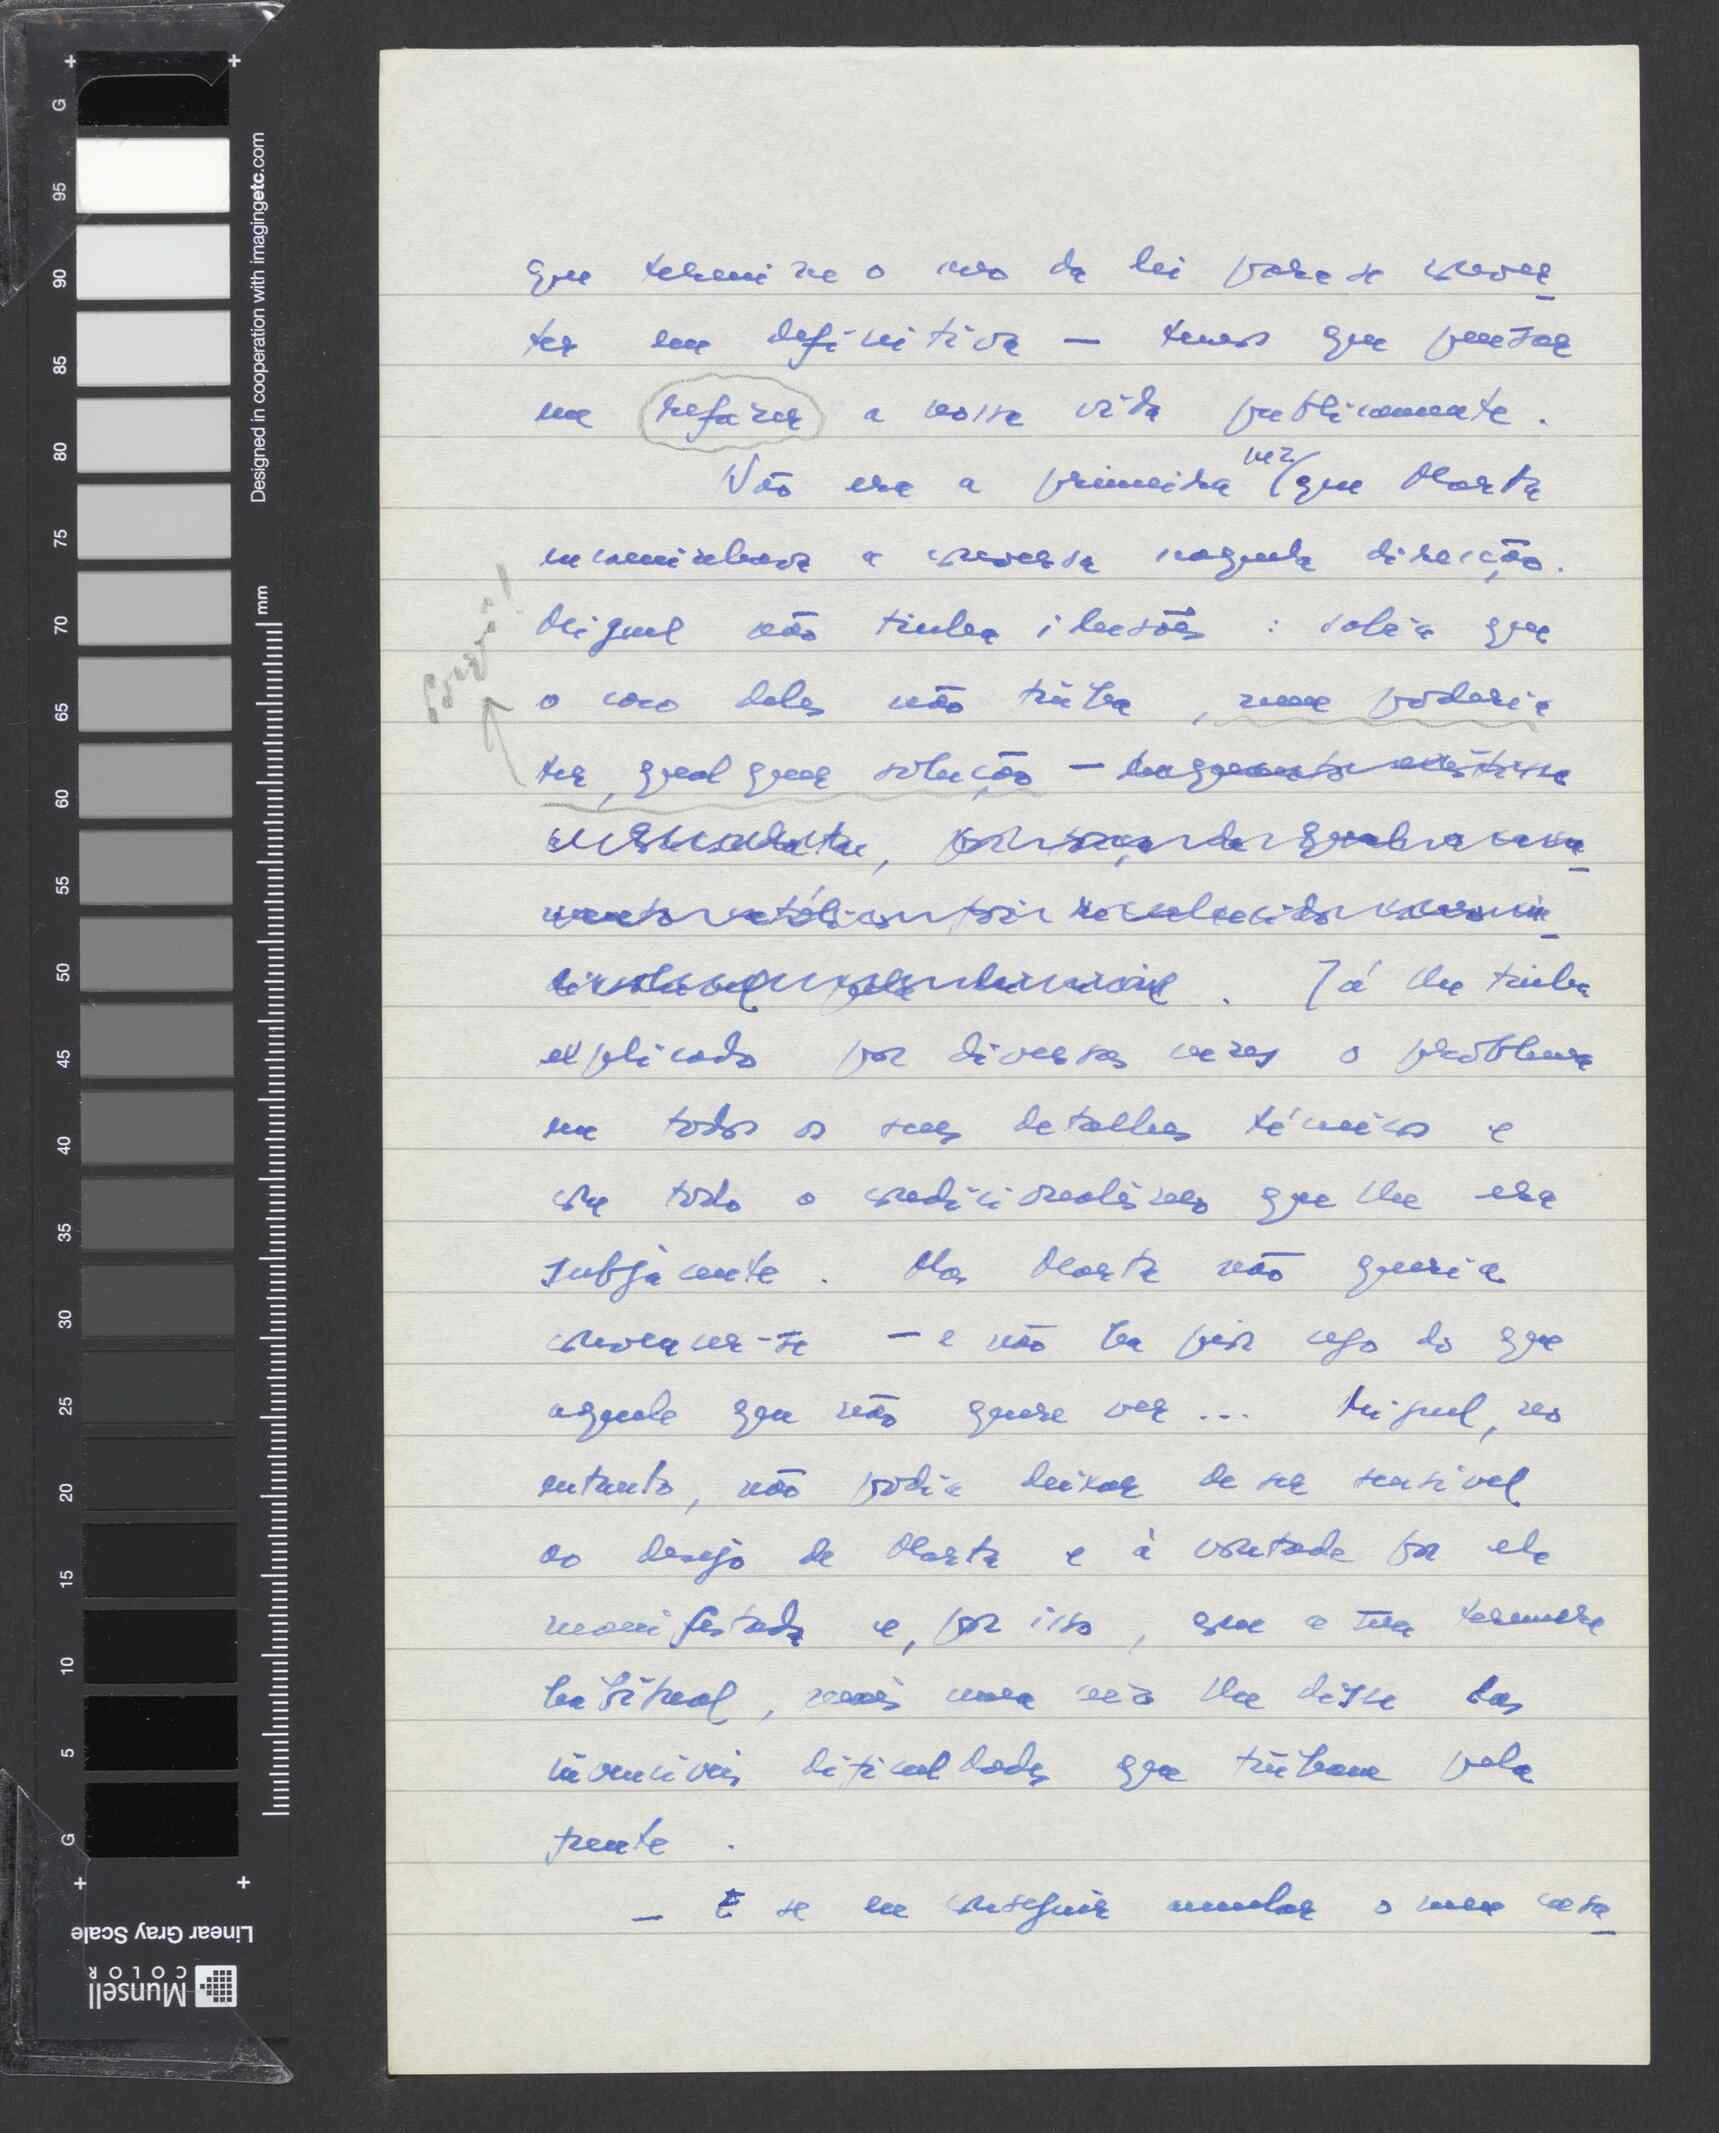 que termine o ano da lei para se conver_
ter em definitiva — temos que pensar
em refazer a nossa vida publicamente.
Não era a primeira vez que Marta
encaminhava a conversa naquela direcção.
Miguel não tinha ilusões : sabia que
o caso deles não tinha, nem poderia
ter, qualquer solução — enquanto existisse
Porquê!
a Concordata, por força da qual o casa_
mento católico foi reconhecido como in_
dissolúvel pela lei civil. Já lhe tinha
explicado por diversas vezes o problema
em todos os seus detalhes técnicos e
com todo o condicionalismo que lhe era
subjacente. Mas Marta não queria
convencer-se — e não há pior cego do que
aquele que não quere ver... Miguel, no
entanto, não podia deixar de ser sensível
ao desejo de Marta e à vontade por ela
manifestada e, por isso, com a sua ternura
habitual, mais uma vez lhe disse das
invencíveis dificuldades que tinham pela
frente.
— E se eu conseguir anular o meu casa_
G
95
90
85
80
75
70
65
60
55
50
45
40
35
30
25
20
15
10
5
G
mm
Designed in cooperation with imagingetc.com
Linear Gray Scale
Munsell
COLOR